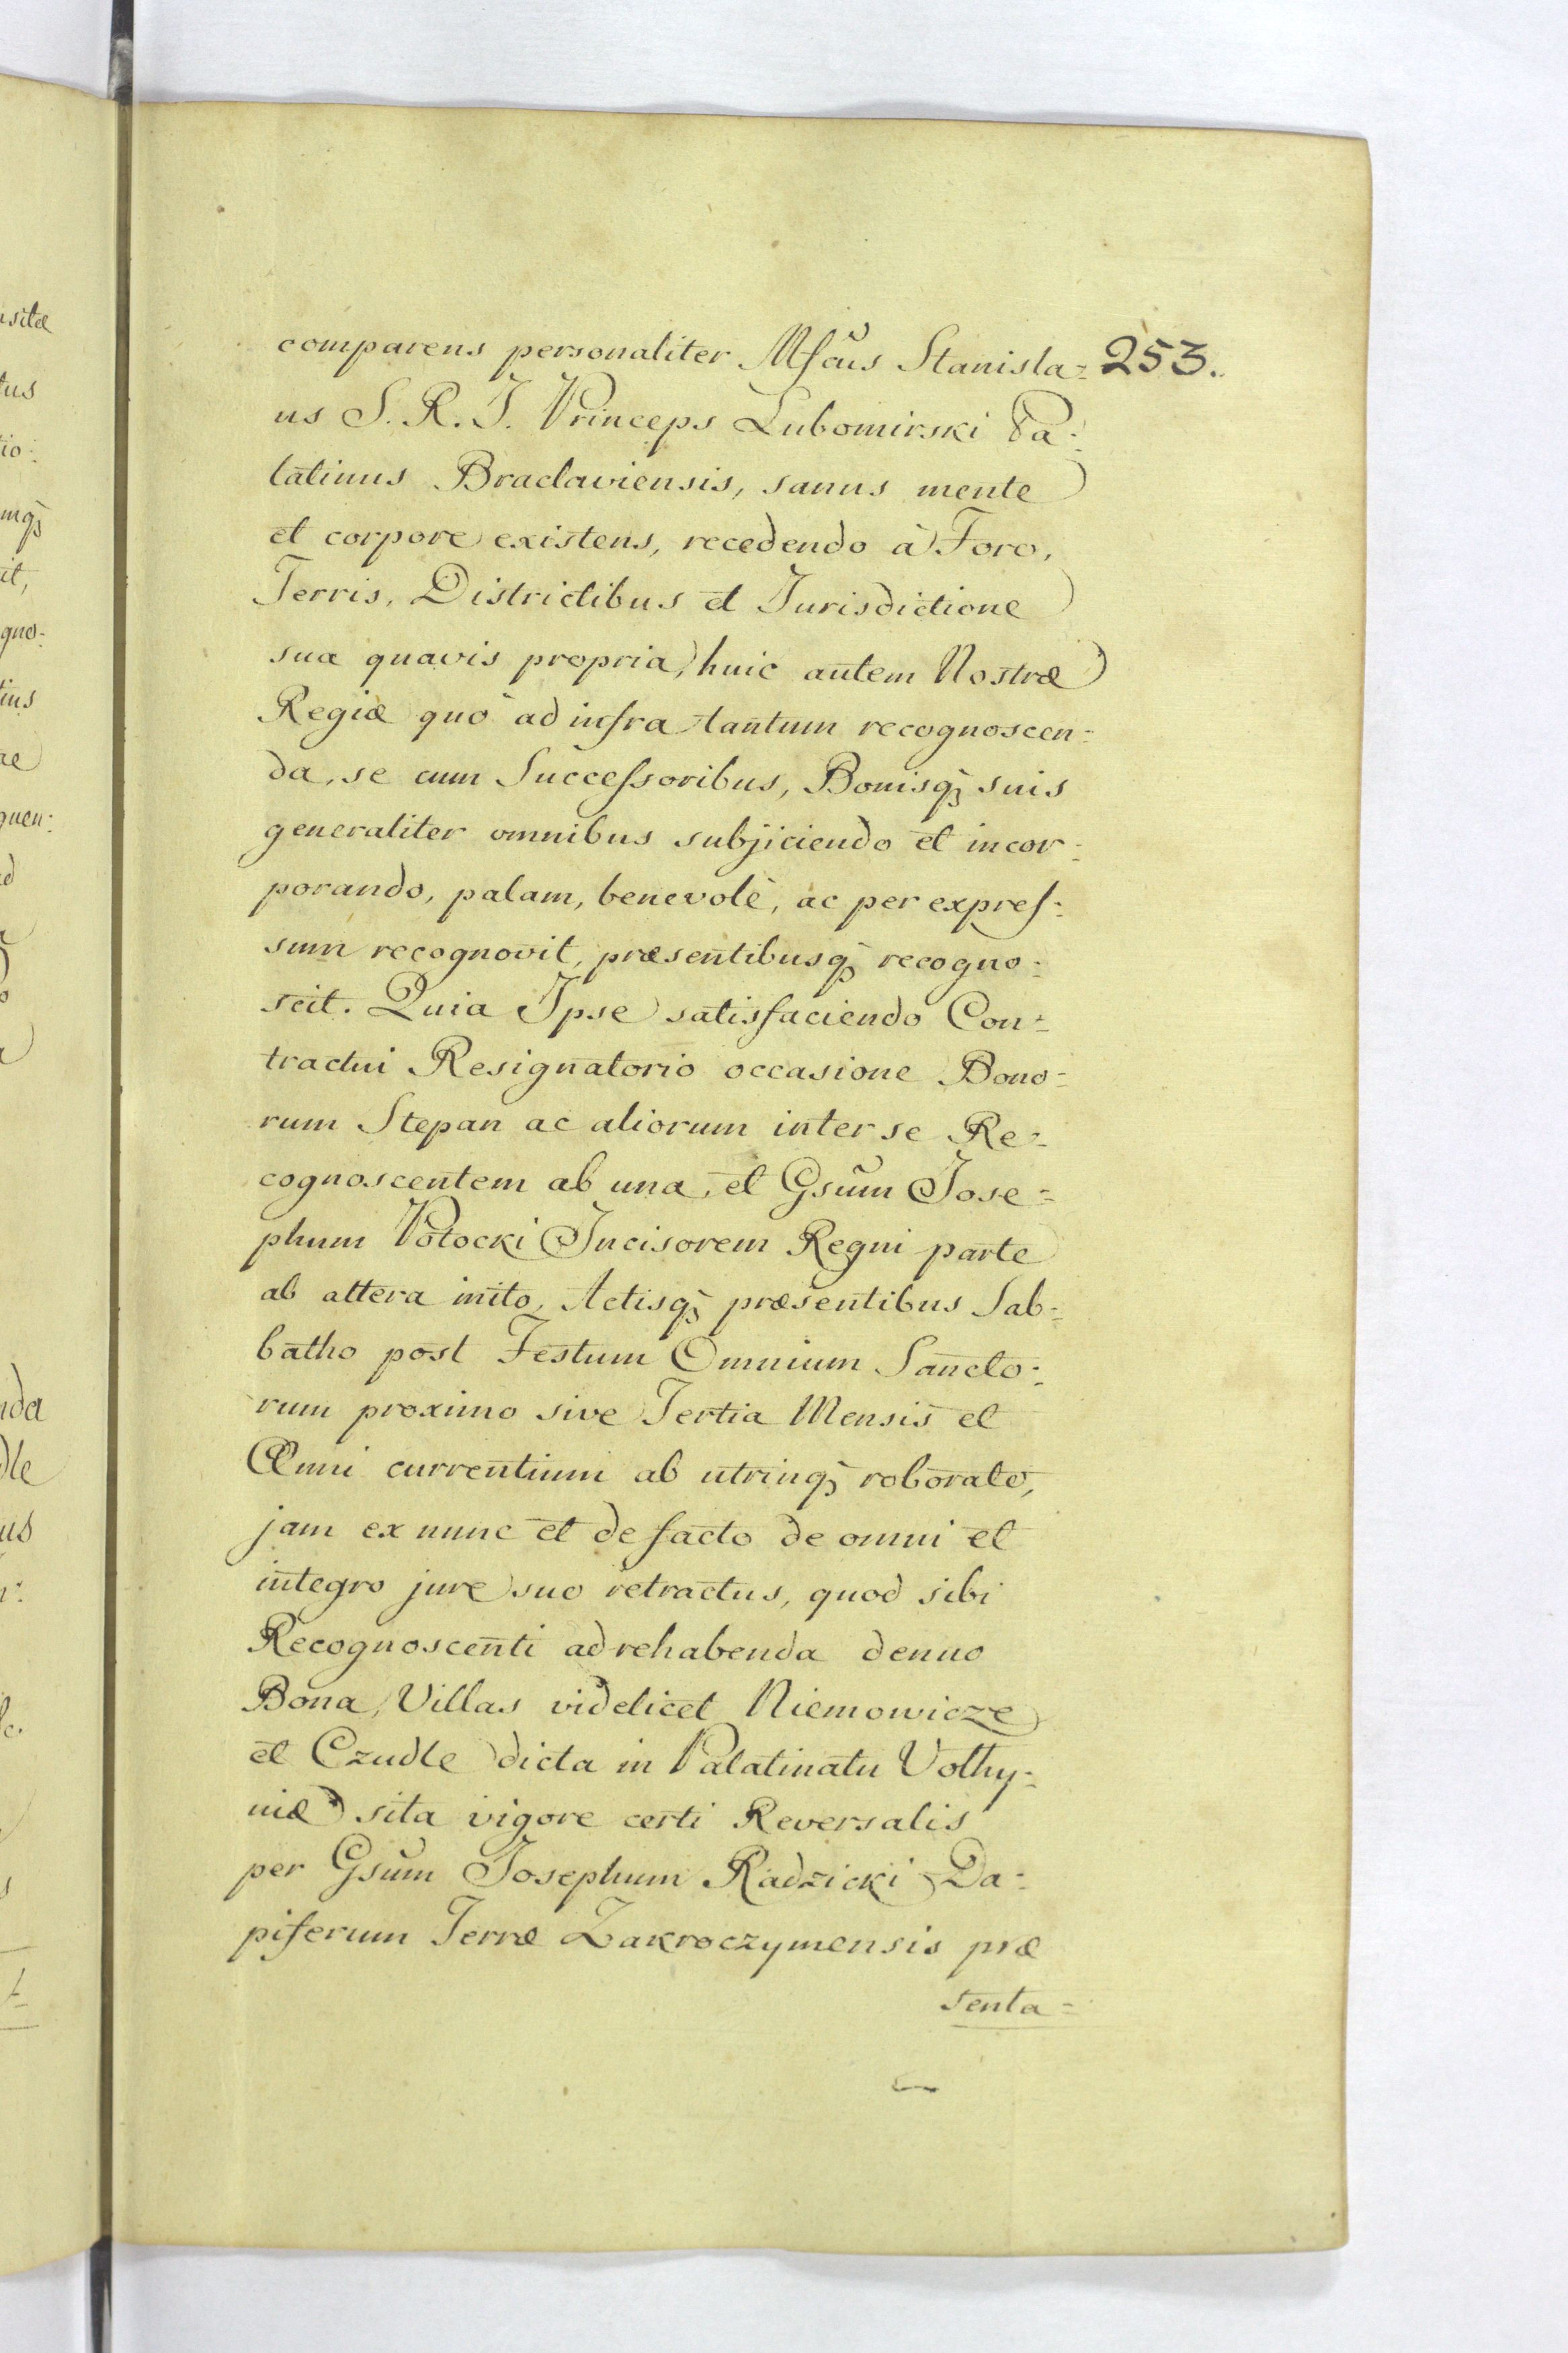 comparens personaliter Mfcus Stanisla= 253.
us S. R. I. Princeps Lubomirski Pa=
latinus Braclaviensis, sanus mente
et corpore existens, recedendo à Foro,
Terris, Districtibus et Jurisdictione
sua quavis propria, huic autem Nostræ
Regiæ quò ad infra tantum recognoscen=
da, se cum Successoribus, Bonisq3 suis
generaliter omnibus subjiciendo et incor=
porando, palam, benevolè, ac per expres=
sum recognovit, præsentibusq3 recogno=
scit. Quia Ipse satisfaciendo Con=
tractui Resignatorio occasione Bono=
rum Stepan ac aliorum inter se Re=
cognoscentem ab una, et Gsum Jose=
phum Potocki Incisorem Regni parte
ab altera inito, Actisq3 præsentibus Sab=
batho post Festum Omnium Sancto=
rum proximo sive Tertia Mensis et
Anni currentium ab utrinq3 roborato,
jam ex nunc et de facto de omni et
integro jure suo retractus, quod sibi
Recognoscenti ad rehabenda denuo
Bona, Villas videlicet Niemowicze
et Czudle dicta in Palatinatu Volhy=
niæ sita vigore certi Reversalis
per Gsum Josephum Radzicki Da=
piferum Terræ Zakroczymensis præ
senta=
usitæ
tus
tio=
mq3
it,
gno=
tius
quen=
nda
dle
us